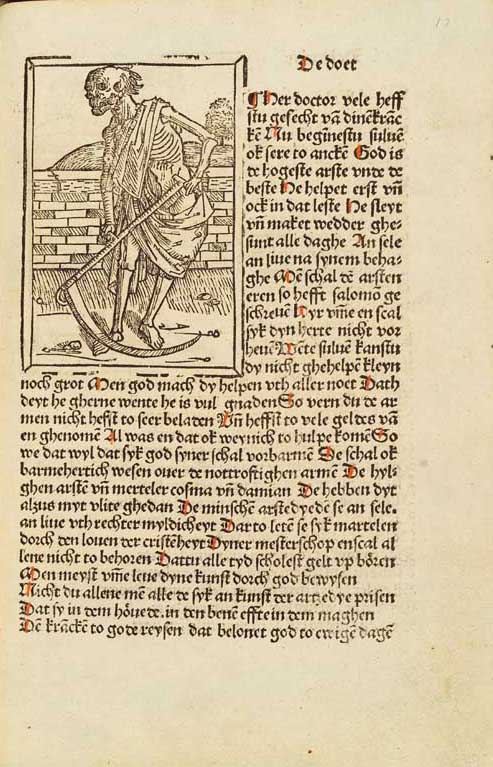 De doet
Her doctor vele heff
stu gesecht vā dinē krac
kē Nu begīnestu suluē
ok sere to anckē God is
de hogeste arste vnde de
beste He helpet erst vn̄
ock in dat leste He sleyt
vn̄ maket wedder ghe-
sunt alle daghe An sele
an liue na synem beha-
ghe Mē schal dē arsten
eren so hefft salomō ge
schreuē Hyr vm̄e en scal
syk dyn herte nicht vor
heuē Wēte suluē kanstu
dy nicht ghehelpē kleyn
noch grot Men god mach dy helpen vth aller noet Dath
deyt he gherne wente he is vul gnaden So vern du de ar
men nicht hefst to seer beladen Vn̄ heffst to vele geldes vā
en ghenomē Al was en dat ok weynich to hulpe komē So
we dat wyl dat syk god syner schal vorbarmē De schal ok
barmehertich wesen ouer de nottroftighen armē De hyl-
ghen arstē vn̄ merteler cosma vn̄ damian De hebben dyt
alzus myt vlite ghedan De minschē arstedyedē se an sele.
an liue vth rechter myldicheyt Dar to letē se syk martelen
dorch den louen der cristēheyt Dyner mesterschop en scal al
lene nicht to behoren Dattu alle tyd scholest gelt vp bören
Men meyst vm̄e leue dyne kunst dorch god bewysen
Nicht du allene mē alle de syk an kunst der artzedye prisen
Dat sy in dem hōuede. in den benē effte in dem maghen
Dē krāckē to gode reysen dat belonet god to ewigē dagē